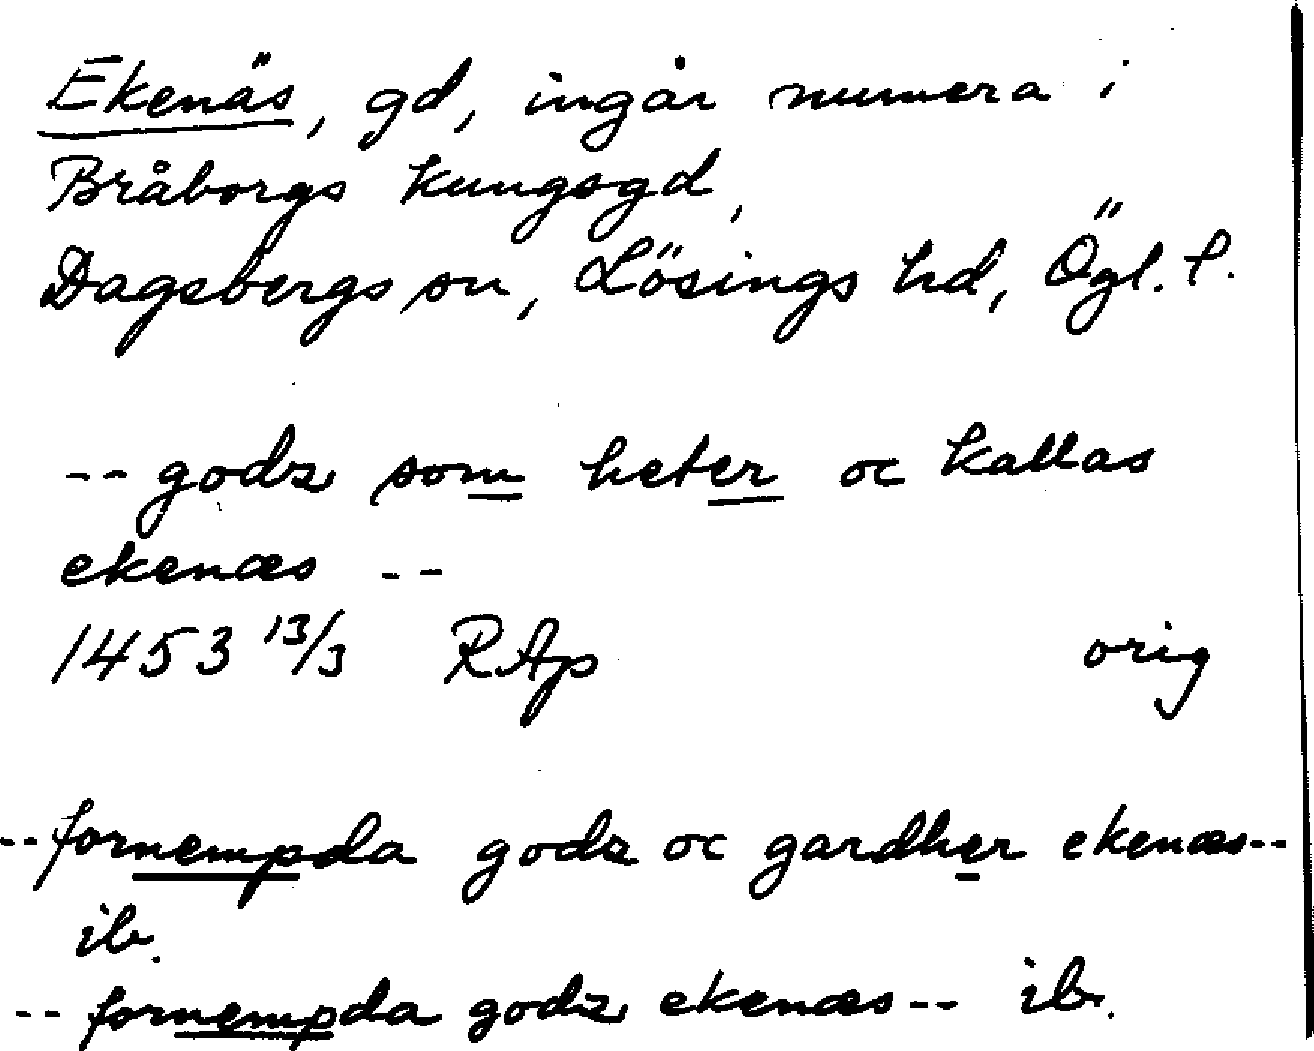 Ekenäs, gd, ingår numera i
Bråborgs kungsgd,
Dagsbergs sn, Lösings hd, Ögl. l.
-- godz som heter oc kallas
ekenæs --
1453 13/3 RAp orig
-- fornempda godz oc gardher ekenæs --
ib.
-- fornempda godz ekenæs -- ib.